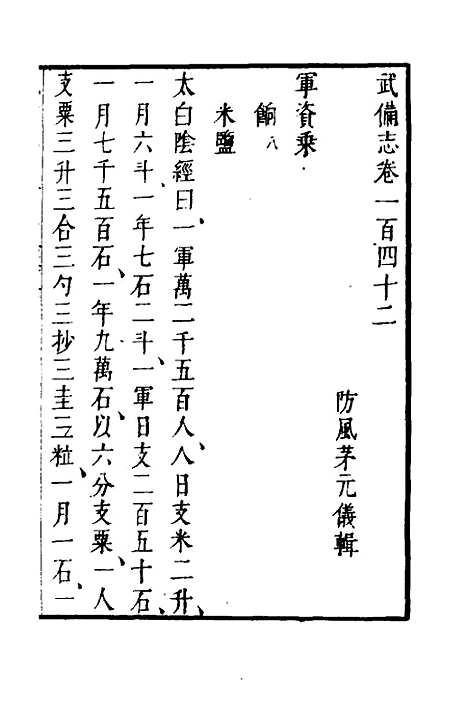 武備志卷一百四十二
防風茅元儀輯
軍資乘
餉八
米鹽
太白陰經曰、一軍萬二千五百人、人日支米二升、
一月六斗、一年七石二斗、一軍日支二百五十石、
一月七千五百石、一年九萬石、以六分支粟、一人
支粟三升三合三勺三抄三圭三粒、一月一石、一